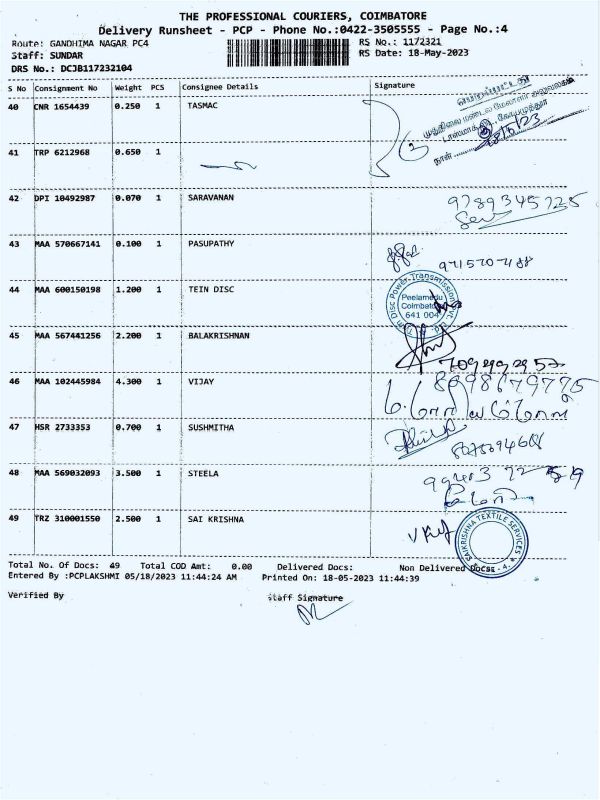 THE PROFESSIONAL COURIERS, COIMBATORE
Delivery Runsheet - PCP - Phone No.:0422-3505555 - Page No.:4
Route: GANDHIMA NAGAR PC4 RS No.: 1172321
Staff: SUNDAR RS Date: 18-May-2023
DRS No.: DCJB117232104
S No Consignment No Weight PCS Consignee Details Signature
40 CNR 1654439 0.250 1 TASMAC
41 TRP 6212968 0.650 1
42 DPI 10492987 0.070 1 SARAVANAN
9789345725
43 MAA 570667141 0.100 1 PASUPATHY
44 MAA 600150198 1.200 1 TEIN DISC
Twin Disc Power Transmission Pvt. Ltd
Peelamedu
Coimbatore
641 004
45 MAA 567441256 2.200 1 BALAKRISHNAN
46 MAA 102445984 4.300 1 VIJAY
8098679775
47 HSR 2733353 0.700 1 SUSHMITHA
48 MAA 569032093 3.500 1 STEELA
49 TRZ 310001550 2.500 1 SAI KRISHNA
SAIKRISHNA TEXTILE SERVICES
Total No. Of Docs: 49 Total COD Amt: 0.00 Delivered Docs: Non Delivered Docs:
Entered By :PCPLAKSHMI 05/18/2023 11:44:24 AM Printed On: 18-05-2023 11:44:39
Verified By Staff Signature